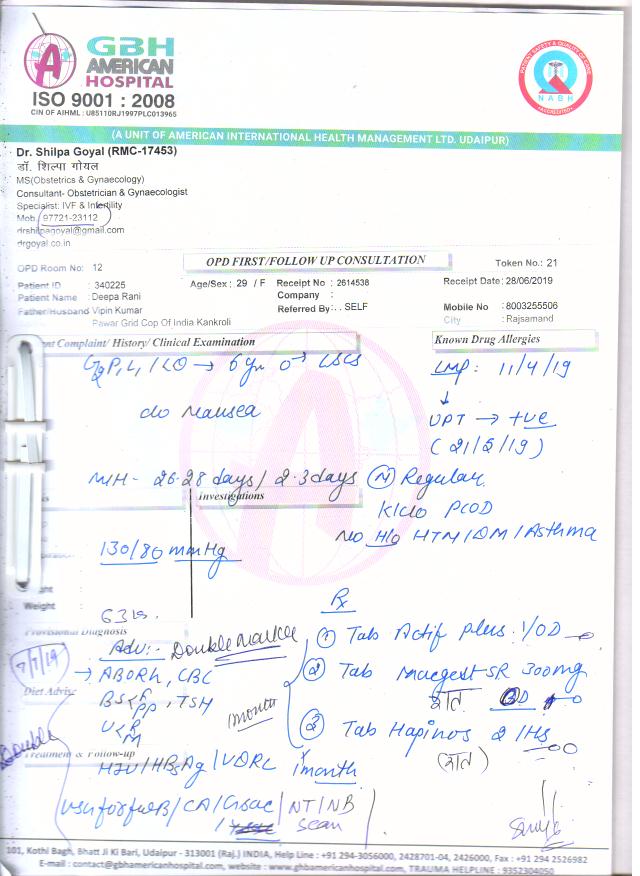 GBH
AMERICAN
HOSPITAL
ISO 9001 : 2008
CIN OF AIHML : U85110RJ1997PLC013965
PATIENT SAFETY & QUALITY OF CARE
NABH
ACCREDITED
(A UNIT OF AMERICAN INTERNATIONAL HEALTH MANAGEMENT LTD. UDAIPUR)
Dr. Shilpa Goyal (RMC-17453)
डॉ. शिल्पा गोयल
MS(Obstetrics & Gynaecology)
Consultant- Obstetrician & Gynaecologist
Specialist: IVF & Infertility
Mob 97721-23112
drshilpagoyal@gmail.com
drgoyal.co.in
OPD FIRST/FOLLOW UP CONSULTATION
Token No.: 21
OPD Room No: 12
Patient ID : 340225
Age/Sex : 29 / F
Receipt No : 2614538
Receipt Date: 28/06/2019
Patient Name : Deepa Rani
Company :
Father/Husband Vipin Kumar
Referred By: . . SELF
Mobile No : 8003255506
Pawar Grid Cop Of India Kankroli
City : Rajsamand
nt Complaint/ History/ Clinical Examination
Known Drug Allergies
G2P1L1 → 6 yr → LSCS
LMP: 11/4/19
c/o Nausea
UPT → +ve
(21/5/19)
M/H - 26-28 days / 2-3 days (N) Regular
K/c/o PCOD
No H/o HTN / DM / Asthma
Investigations
130/80 mmHg
Weight :
63
Provisional Diagnosis
Rx
Adv:- Double Marker
7/7/19
→ ABORh, CBC
BS F PP, TSH
U R M
1month
Diet Advise
Double
Treatment & Follow-up
HIV / HBsAg / VDRL
(1) Tab Actif Plus 1/OD
(2) Tab SR 300mg
(3) Tab Hapinos 2 / HS
1 month
USG for / CA / Gsac / NT / NB
scan
101, Kothi Bagh, Bhatt Ji Ki Bari, Udaipur - 313001 (Raj.) INDIA, Help Line : +91 294-3056000, 2428701-04, 2426000, Fax : +91 294 2526982
E-mail : contact@gbhamericanhospital.com, website : www.gbhamericanhospital.com, TRAUMA HELPLINE : 9352304050